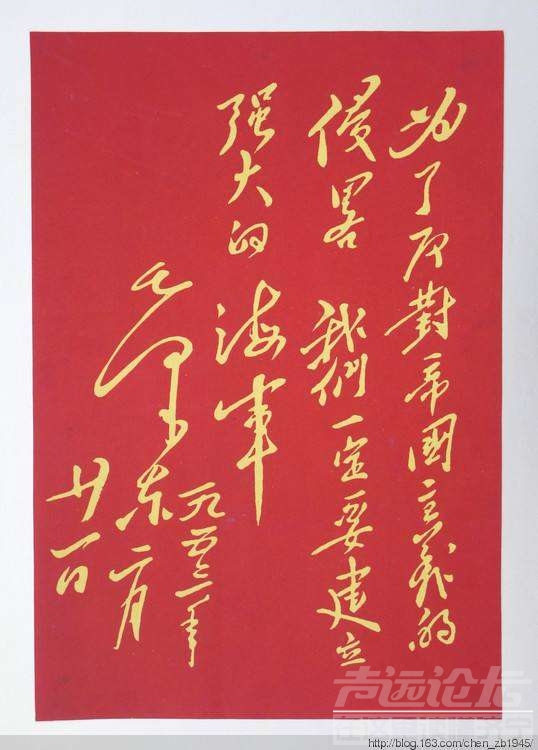 为了反對帝國主義的
侵畧 我們一定要建立
强大的海軍
毛澤東
一九五三年
二月
廿一日
声远论坛
http://blog.163.com/chen_zb1945/